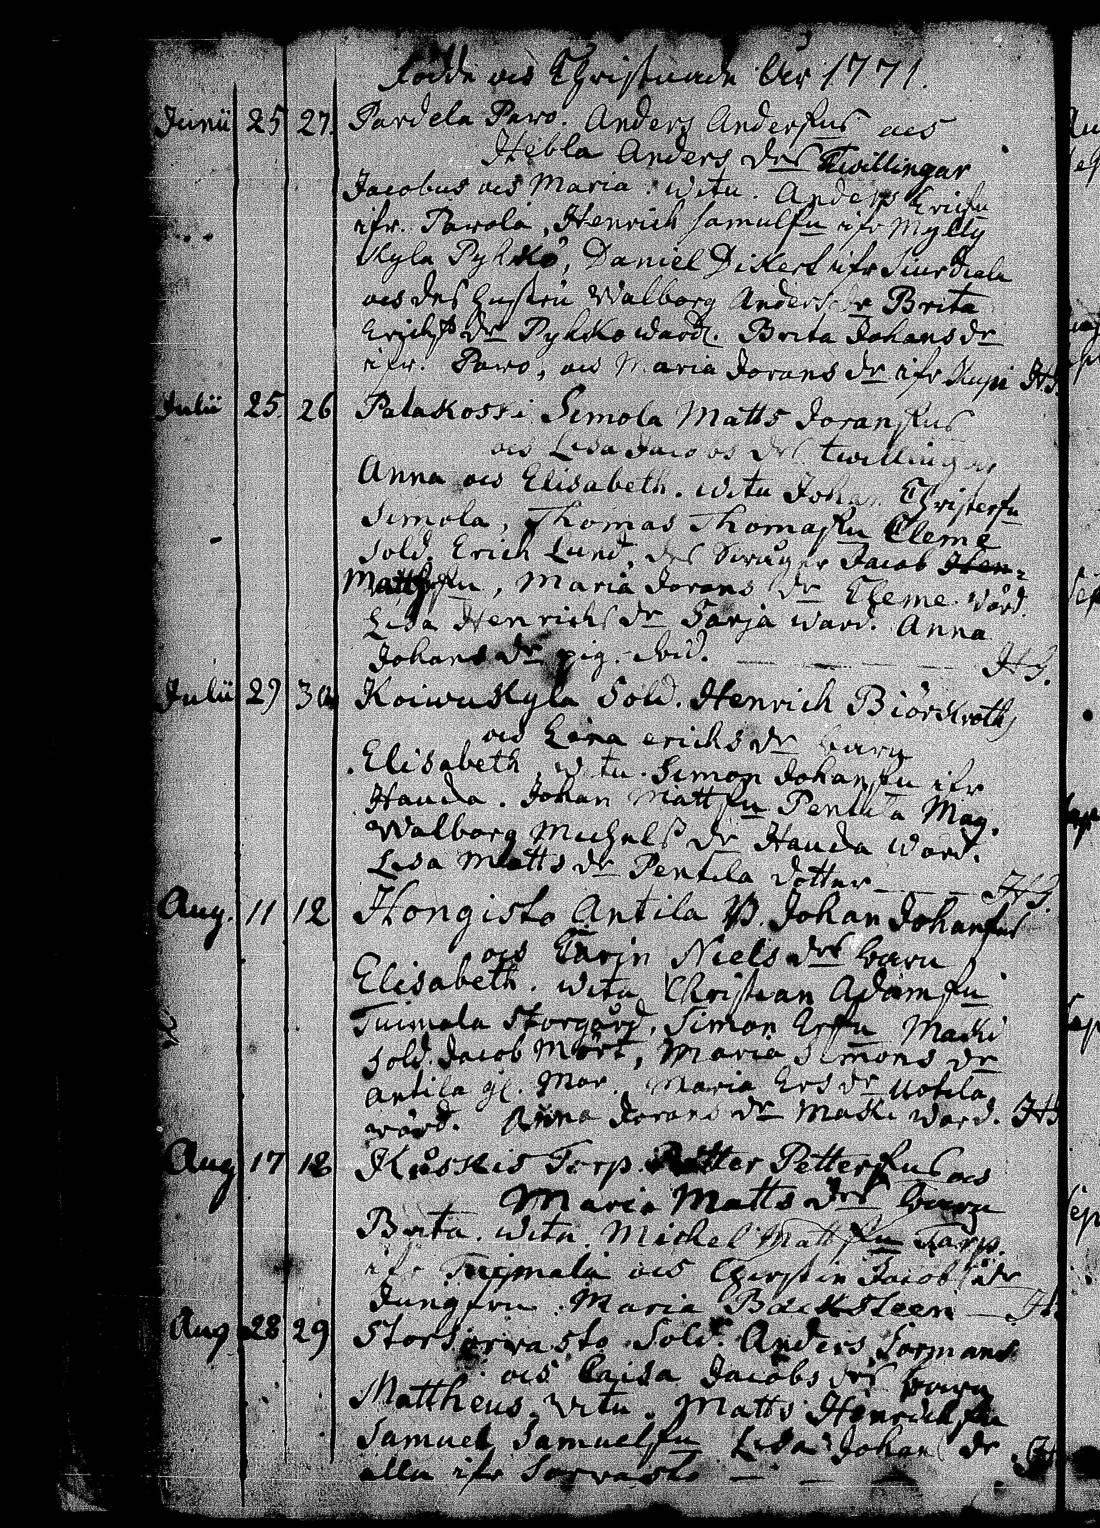 Födde och Christnade År 1771.
Junii 25 27. Pardela Paro. Anders Andersſons och
Hebla Anders drs Twillingar
Jacobus och Maria. witn. Anders Erichsn
ifr. Parola, Henrich Samulsn ifr Mylly
Kyla Pyhkö, Daniel Dikert ifr
och des hustru Walborg Anders dr Brita
Erichs dr Pyhkö ward. Brita Johans dr
ifr. Paro, och Maria Jorans dr ifr HG.
Julii 25 26 Palakoski Simola Matts Joransſons
och Lisa Jacobs drs twillingar
Anna och Elisabeth. witn Johan Christersn
Simola, Thomas Thomasſn Cleme
Sold. Erich Lund, des Swåger Jacob Hen-
Mattsſn, Maria Jorans dr Cleme ward.
Lisa Henrichs dr Sarja ward. Anna
Johans dr pig. ibid. HG.
Julii 29 30 Koiwukyla Sold. Henrich Biörkroths
och Lena erichs dr barn
Elisabeth, witn. Simon Johansſn ifr
Hauda. Johan Mattsſn Pentila Mag.
Walborg Michels dr Hauda ward.
Lisa Matts dr Pentila dotter HG.
Aug. 11 12 Hongisto Antila B. Johan Johansſons
och Carin Niels drs barn
Elisabeth. witn Christian Adamsſn
Tuimala Storgård, Simon Ersſn Maski
Sold. Jacob Mört, Maria Simons dr
Antila gl. Mor. Maria Ers dr Uotila
ward. Anna Jorans dr Maski ward. HG
Aug 17 18 Kåskis Torp. Petter Pettersſons och
Maria Matts drs barn
Brita. witn. Michel Mattsſn Torp.
ifr Tuimala och Chirstin Jacobs dr
Jungfru Maria Backsteen HG.
Aug 28 29 Storsorwasto Sold. Anders Sormans
och Caisa Jacobs drs barn
Mattheus. witn. Matts Henrichsſn
Samuel Samuelsſn Lisa Johans dr
alla ifr Sorwasto HG